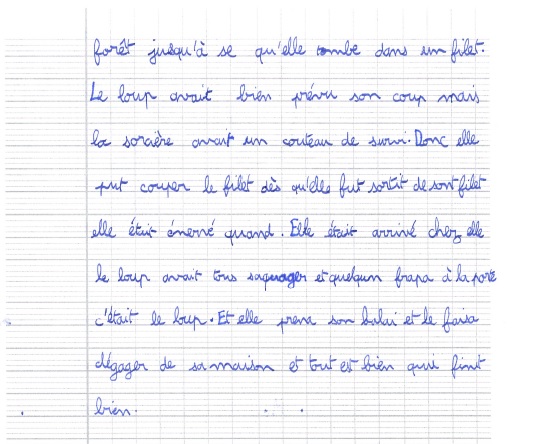 forêt jusqu'à se qu'elle tombe dans un filet.
Le loup avait bien prévu son coup mais
la sorcière avait un couteau de survi. Donc elle
put couper le filet dès qu'elle fut sortit de sont filet
elle était énervé quand. Elle était arrivé chez elle
le loup avait tous saquager et quelqun frapa à la porte
c'était le loup. Et elle prena son balai et le faisa
dégager de sa maison et tout est bien qui finit
bien.